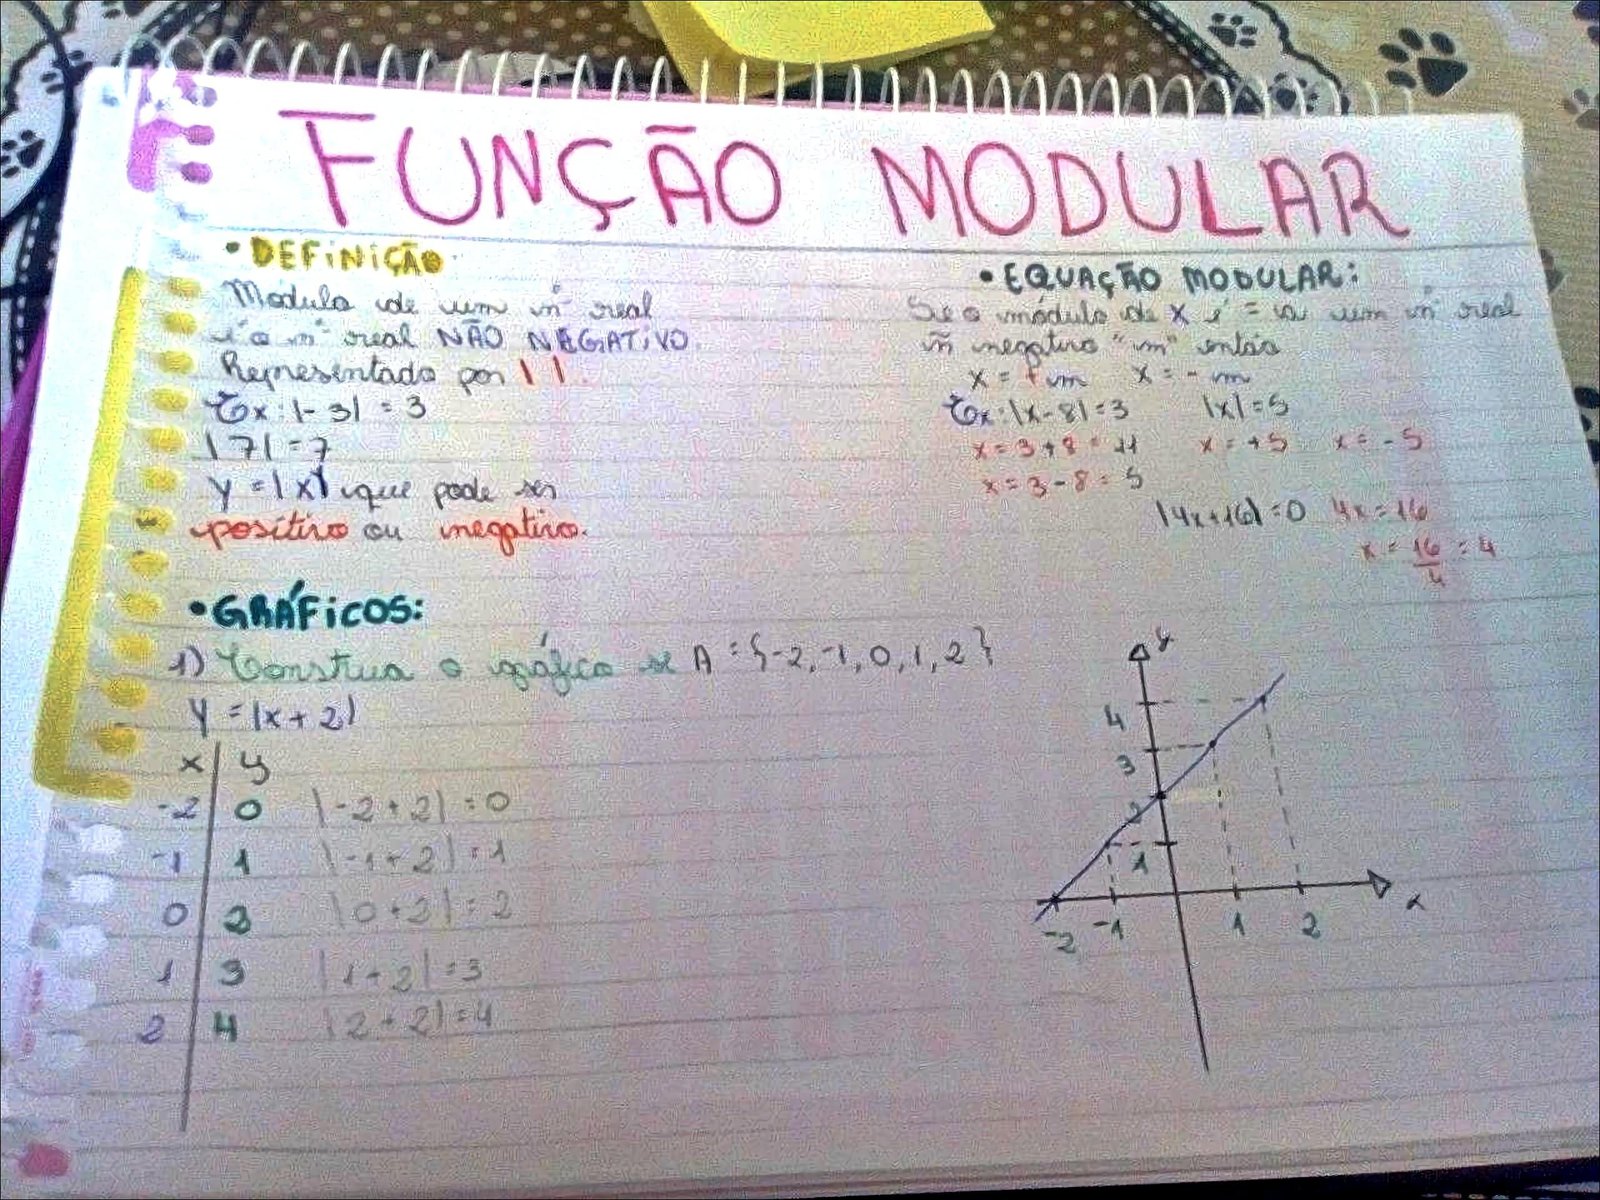 FUNÇÃO MODULAR
• DEFINIÇÃO
Módulo de um nº real
é o nº real NÃO NEGATIVO.
Representado por | |.
Ex: |-3| = 3
|7| = 7
y = |x| que pode ser
positivo ou negativo.
• EQUAÇÃO MODULAR:
Se o módulo de x é = a um nº real
ñ negativo "m" então
x = + m x = - m
Ex: |x - 8| = 3 |x| = 5
x = 3 + 8 = 11 x = +5 x = -5
x = 3 - 8 = 5
|4x+16| = 0 4x = 16
x = 16/4 = 4
• GRÁFICOS:
1) Construa o gráfico se A = {-2, -1, 0, 1, 2}
y = |x + 2|
x y
-2 0 |-2 + 2| = 0
-1 1 |-1 + 2| = 1
0 2 |0 + 2| = 2
1 3 |1 + 2| = 3
2 4 |2 + 2| = 4
y
4
3
2
1
-2 -1 1 2 x